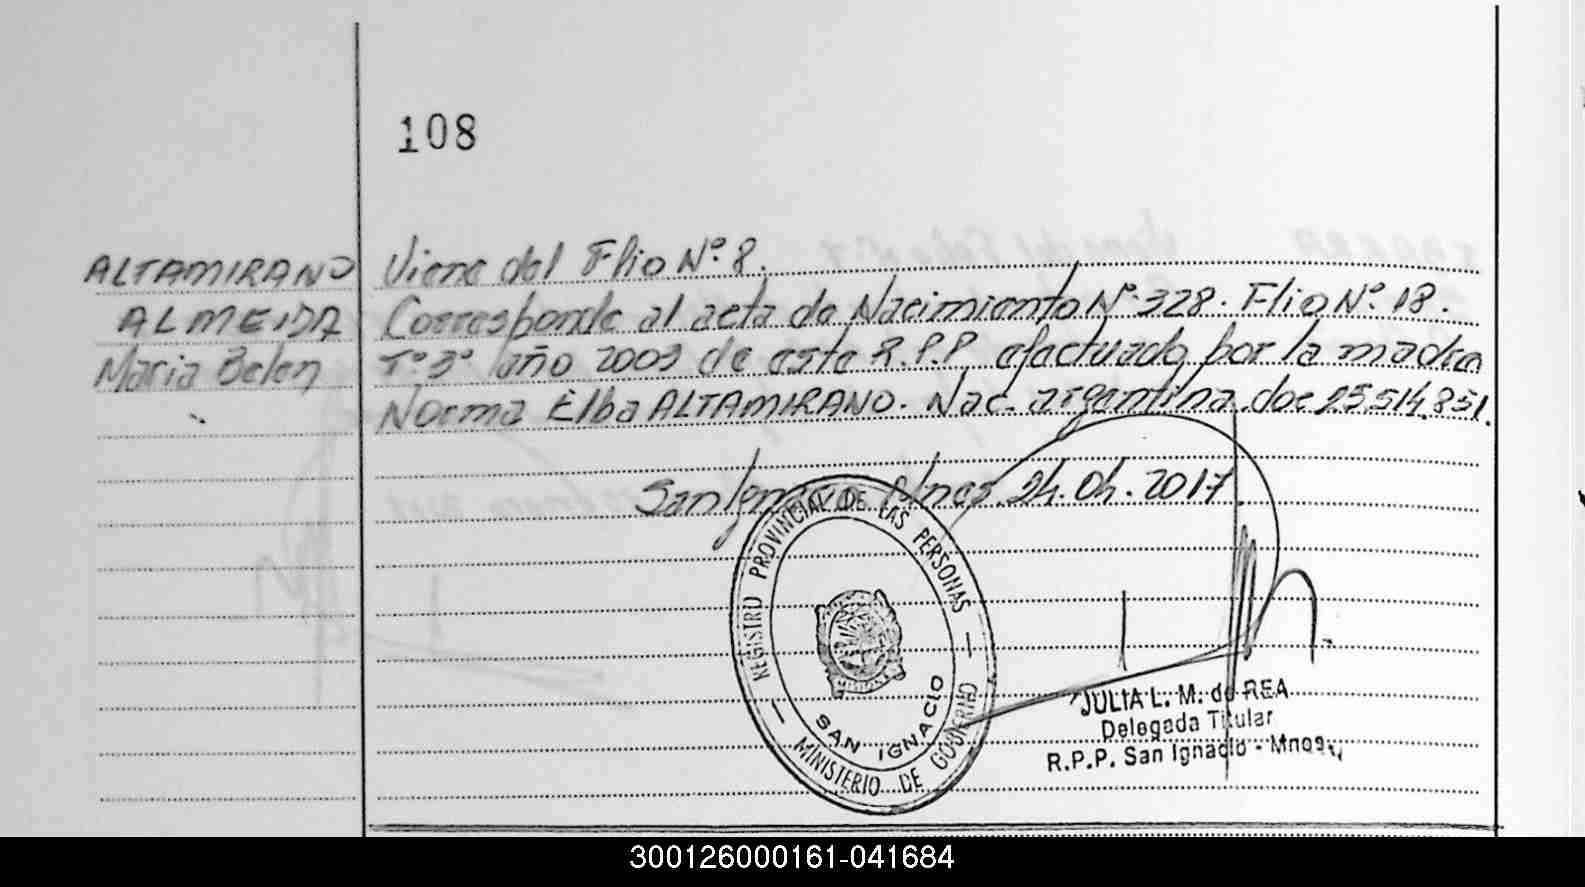 108
ALTAMIRANO
ALMEIDA
Maria Belen
Viene del Flio Nº 8.
Corresponde al acta de Nacimiento Nº 328. Flio Nº 18.
Tº 3º año 2003 de este R.P.P. efectuado por la madre
Norma Elba ALTAMIRANO. Nac. argentina doc 25.514.851.
San Ignacio Mnes. 24.04.2017
REGISTRO PROVINCIAL DE LAS PERSONAS
SAN IGNACIO
MINISTERIO DE GOBIERNO
JULIA L. M. de REA
Delegada Titular
R.P.P. San Ignacio - Mnes.
300126000161-041684